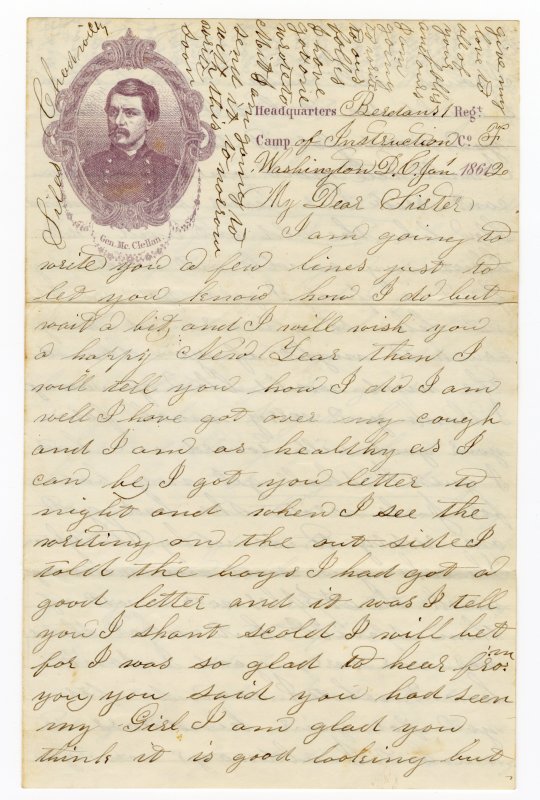 Headquarters Berdans 1 Regt
Camp of Instruction Co. F
Washington D.C. Jan 1 1862
My Dear Sister
I am going to
write you a few lines just to
let you know how I do but
wait a bit and I will wish you
a happy New Year than I
will tell you how I do I am
well I have got over my cough
and I am as healthy as I
can be, I got you letter to
night and when I see the
writing on the out side I
told the boys I had got a
good letter and it was I tell
you I shant scold I will bet
for I was so glad to hear from
you, you said you had seen
my Girl I am glad you
think it is good looking but
Gen. Mc. Clellan.
give my
love to
all of
your
folks
and our
going
to our
folks
I have
wrote to
I am going to
send it to
with this tomorrow
write
soon